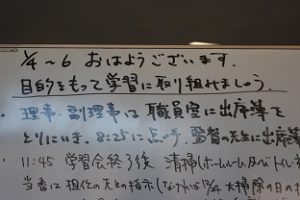 1/4～6 おはようございます.
目的をもって学習に取り組みましょう.
・理事・副理事は 職員室に出席簿を
とりにいき. 8:25に点呼. 監督の先生に出席簿
・11:45 学習会終了後 清掃(ホームルーム・ベランダ・トイレ・
当番は 担任の先生の指示(なければ12/4 大掃除の日の